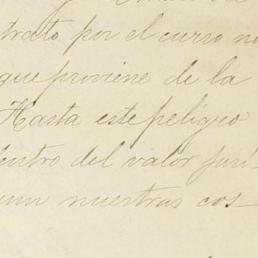 trato por el curso no
que proviene de la
Hasta este peligro
dentro del valor jurí-
nuestras cos